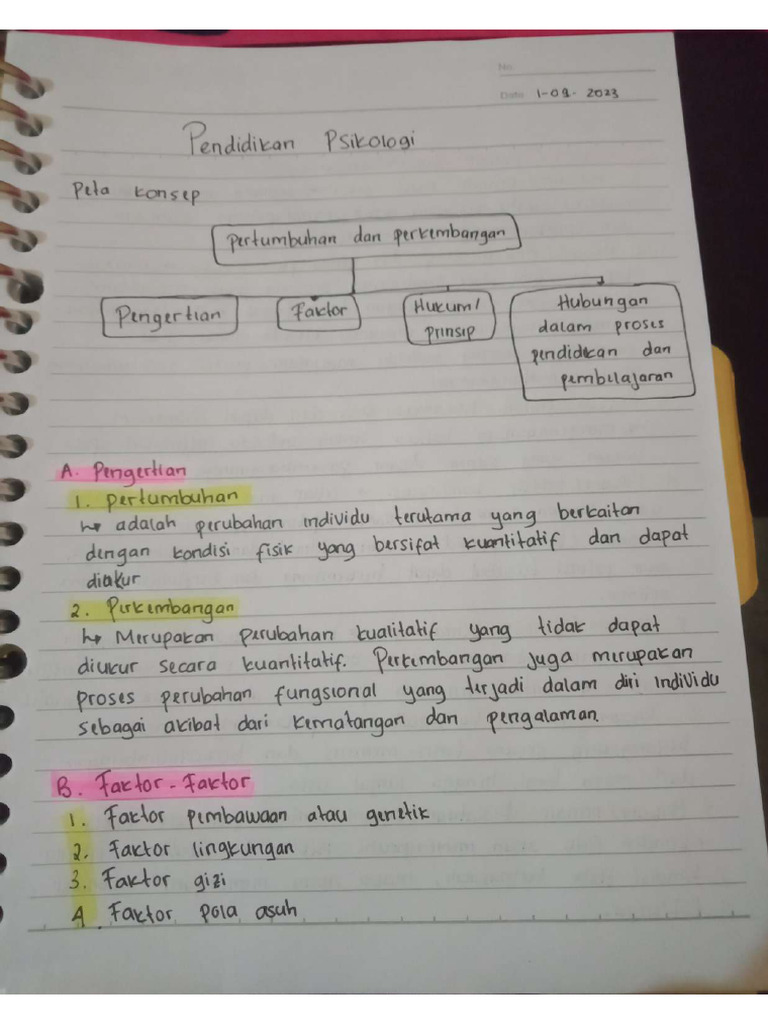 No.
Date 1-09-2023
Pendidikan Psikologi
Peta konsep
Pertumbuhan dan perkembangan
Pengertian
Faktor
Hukum/
prinsip
Hubungan
dalam proses
pendidikan dan
pembelajaran
A. Pengertian
1. pertumbuhan
↳ adalah perubahan individu terutama yang berkaitan
dengan kondisi fisik yang bersifat kuantitatif dan dapat
diukur
2. Perkembangan
↳ Merupakan perubahan kualitatif yang tidak dapat
diukur secara kuantitatif. Perkembangan juga merupakan
proses perubahan fungsional yang terjadi dalam diri individu
sebagai akibat dari kematangan dan pengalaman.
B. Faktor - Faktor
1. Faktor pembawaan atau genetik
2. Faktor lingkungan
3. Faktor gizi
4 Faktor pola asuh